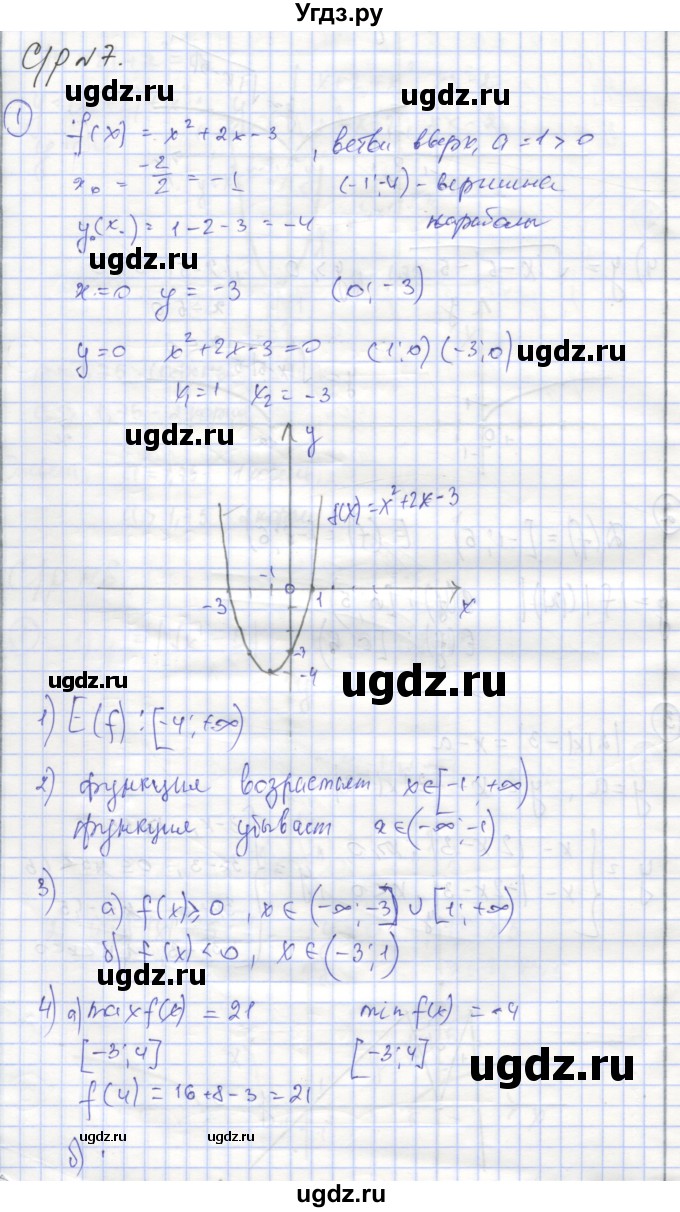 Угдз.ру
С/р №7.
ugdz.ru
1 f(x) = x² + 2x - 3 , ветви вверх, a = 1 > 0
x₀ = -2/2 = -1 (-1; -4) - вершина
y₀(x₀) = 1 - 2 - 3 = -4 параболы
ugdz.ru
x = 0 y = -3 (0; -3)
y = 0 x² + 2x - 3 = 0 (1; 0) (-3; 0) ugdz.ru
x₁ = 1 x₂ = -3
ugdz.ru
y
f(x) = x² + 2x - 3
-1 0
-3 1 x
-3
-4
ugdz.ru
1) E(f): [-4; +∞)
2) функция возрастает x ∈ [-1; +∞)
функция убывает x ∈ (-∞; -1)
3)
а) f(x) ≥ 0, x ∈ (-∞; -3] ∪ [1; +∞)
б) f(x) < 0, x ∈ (-3; 1)
ugdz.ru
4) а) max f(x) = 21 min f(x) = -4
[-3; 4] [-3; 4]
ugdz.ru
ugdz.ru
f(4) = 16 + 8 - 3 = 21
ugdz.ru ugdz.ru
б)
ugdz.ru